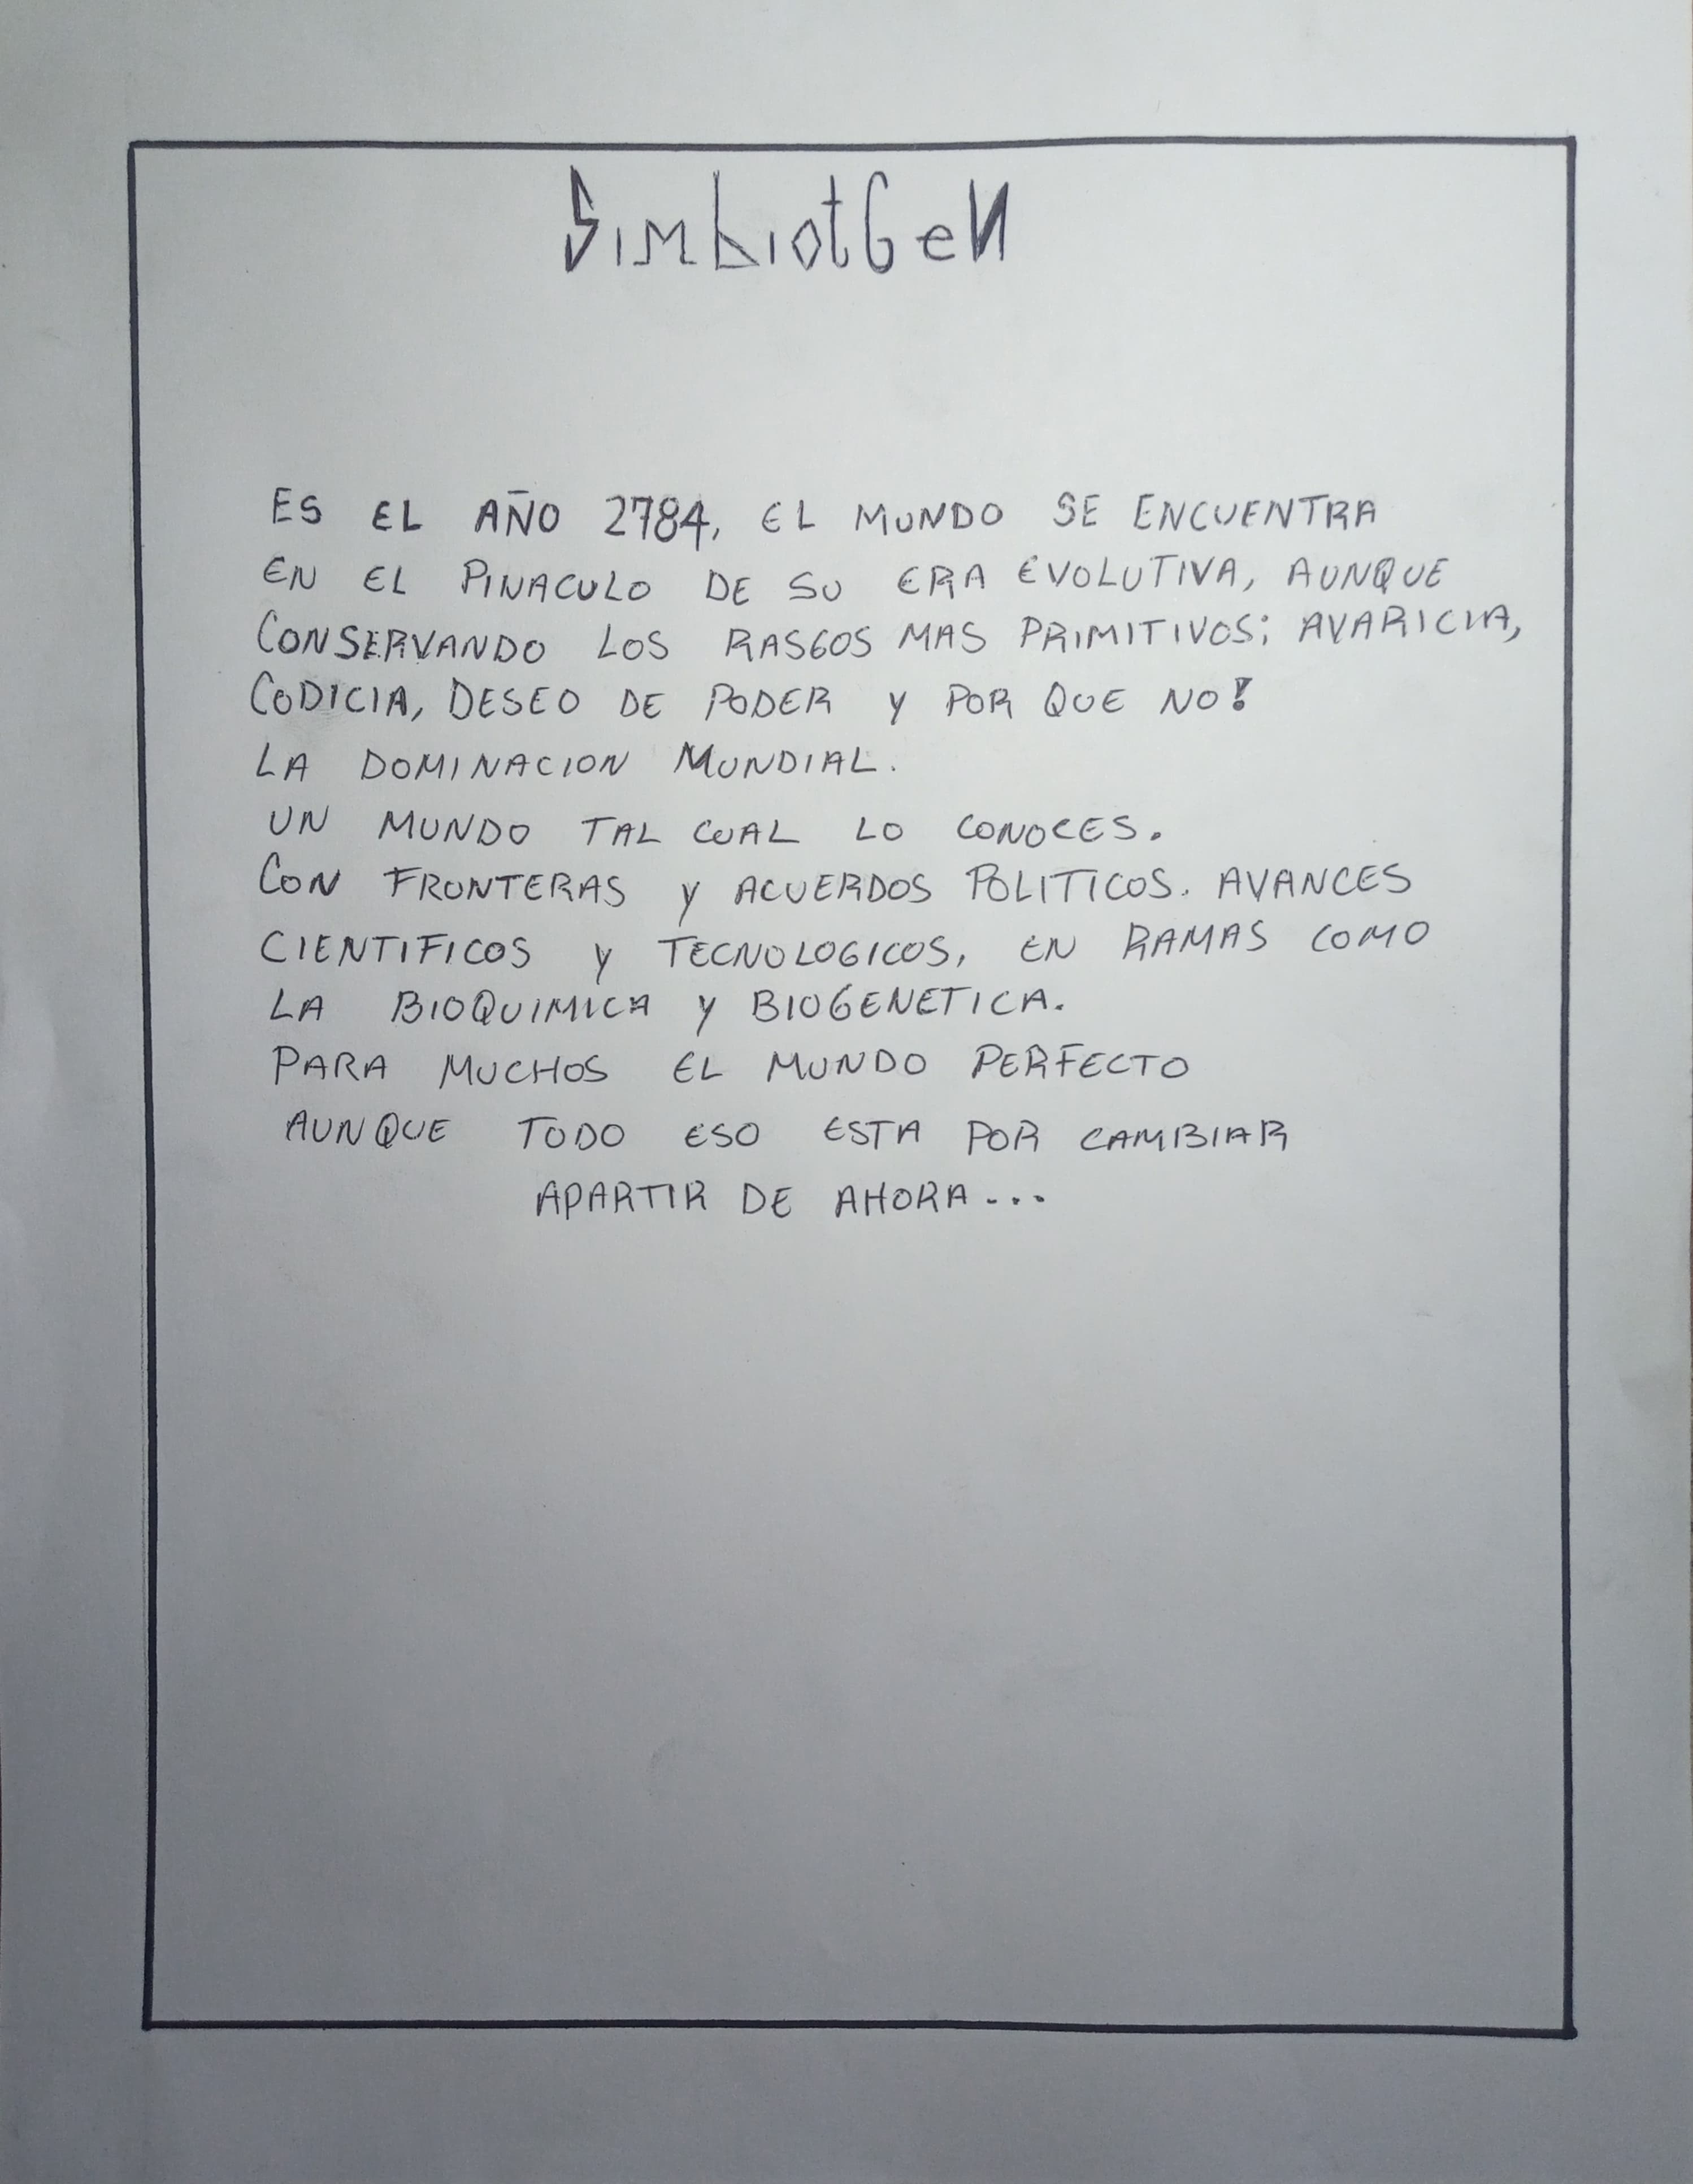 SimbiotGeN
ES EL AÑO 2784, EL MUNDO SE ENCUENTRA
EN EL PINACULO DE SU ERA EVOLUTIVA, AUNQUE
CONSERVANDO LOS RASGOS MAS PRIMITIVOS; AVARICIA,
CODICIA, DESEO DE PODER Y POR QUE NO!
LA DOMINACION MUNDIAL.
UN MUNDO TAL CUAL LO CONOCES.
CON FRONTERAS Y ACUERDOS POLITICOS. AVANCES
CIENTIFICOS Y TECNOLOGICOS, EN RAMAS COMO
LA BIOQUIMICA Y BIOGENETICA.
PARA MUCHOS EL MUNDO PERFECTO
AUNQUE TODO ESO ESTA POR CAMBIAR
APARTIR DE AHORA...